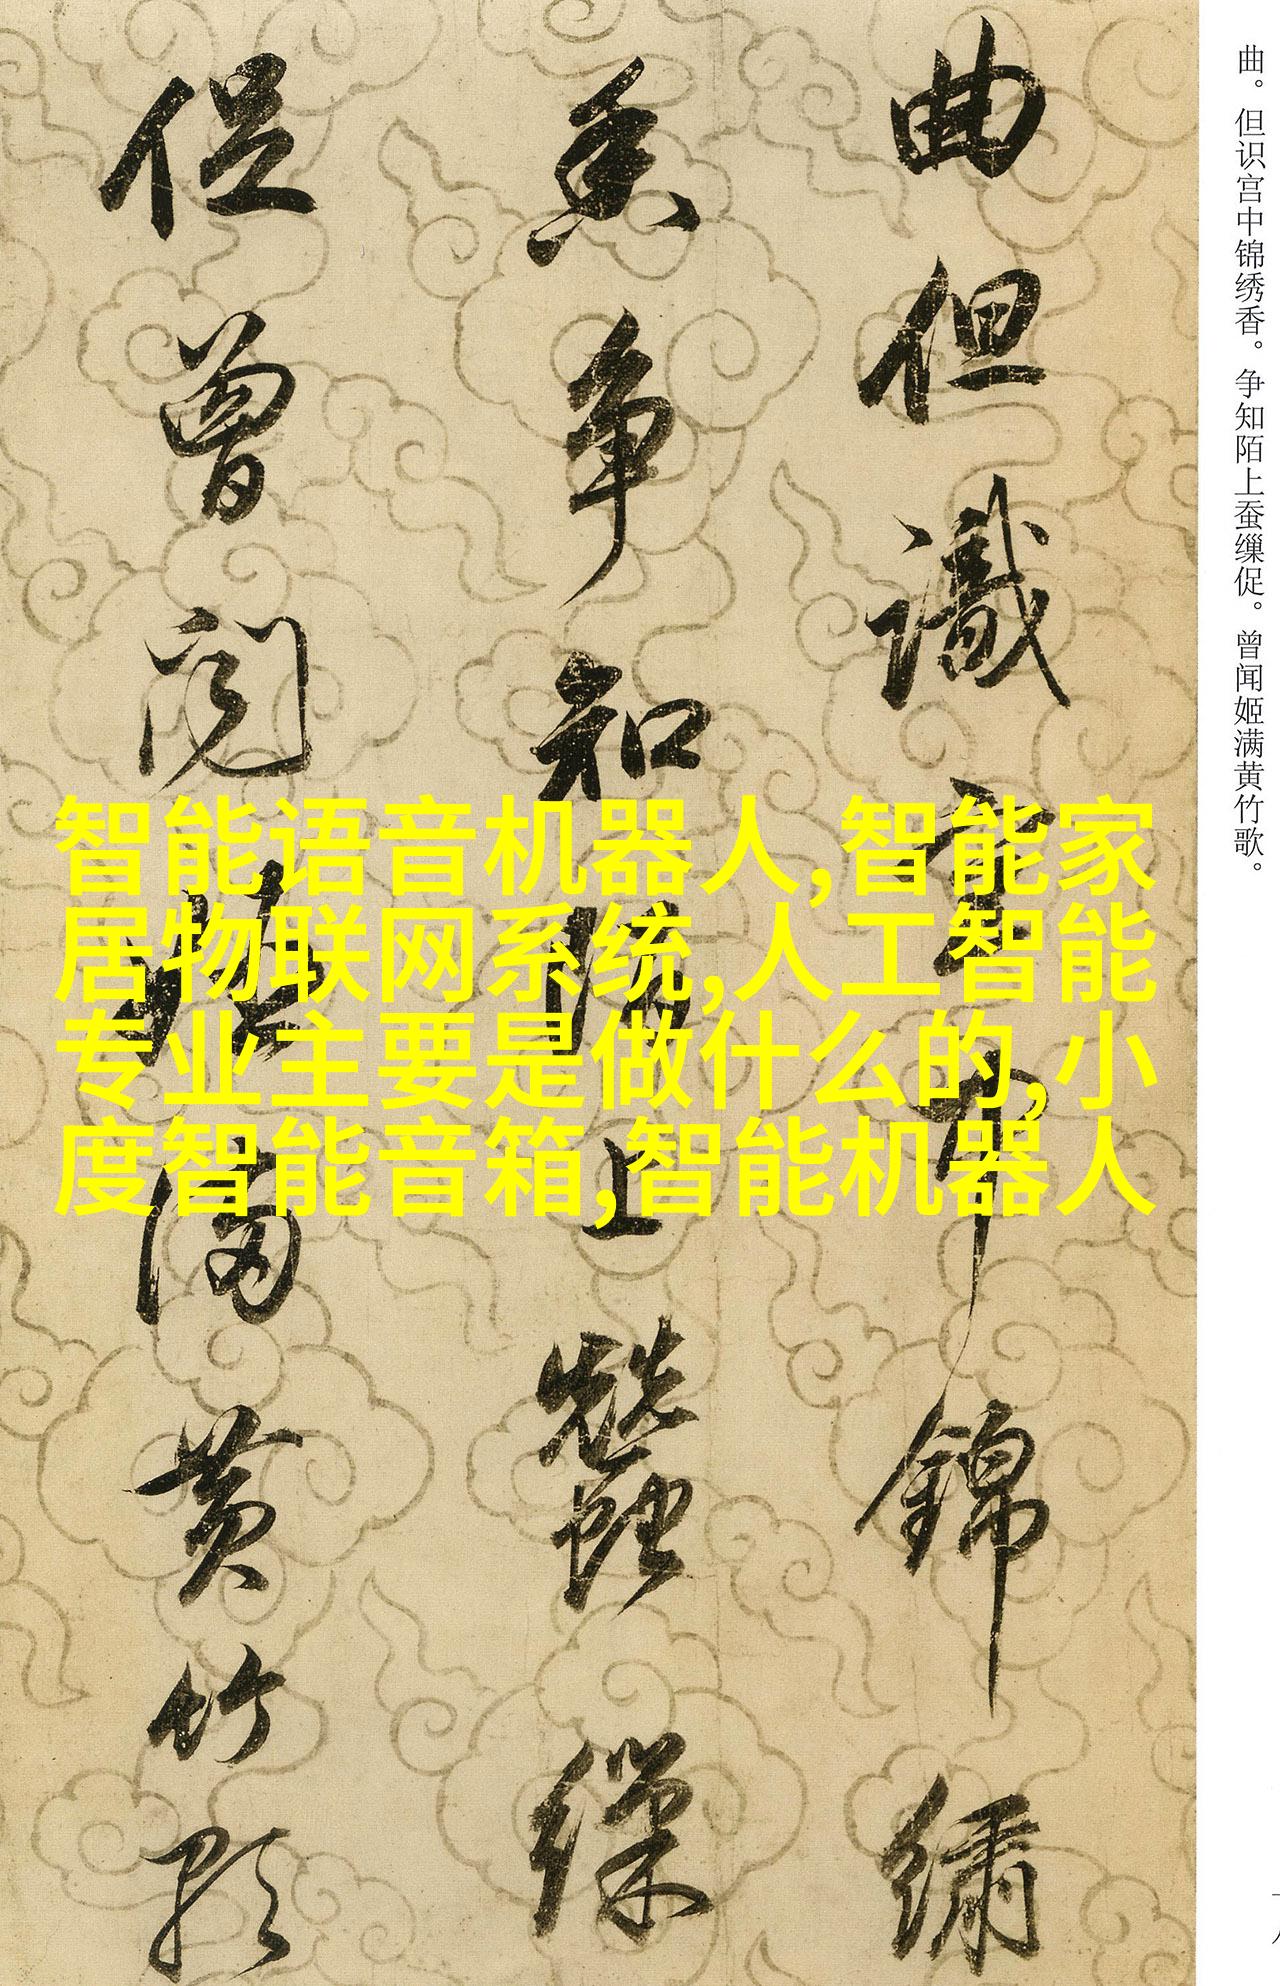 曲。但识宫中锦绣香。争知陌上蚕缫促。曾闻姬满黄竹歌。
曲但識宮中錦繡
香争知陌上蠶繅
促曾聞姬滿黄竹歌
智能语音机器人,智能家
居物联网系统,人工智能
专业主要是做什么的,小
度智能音箱,智能机器人